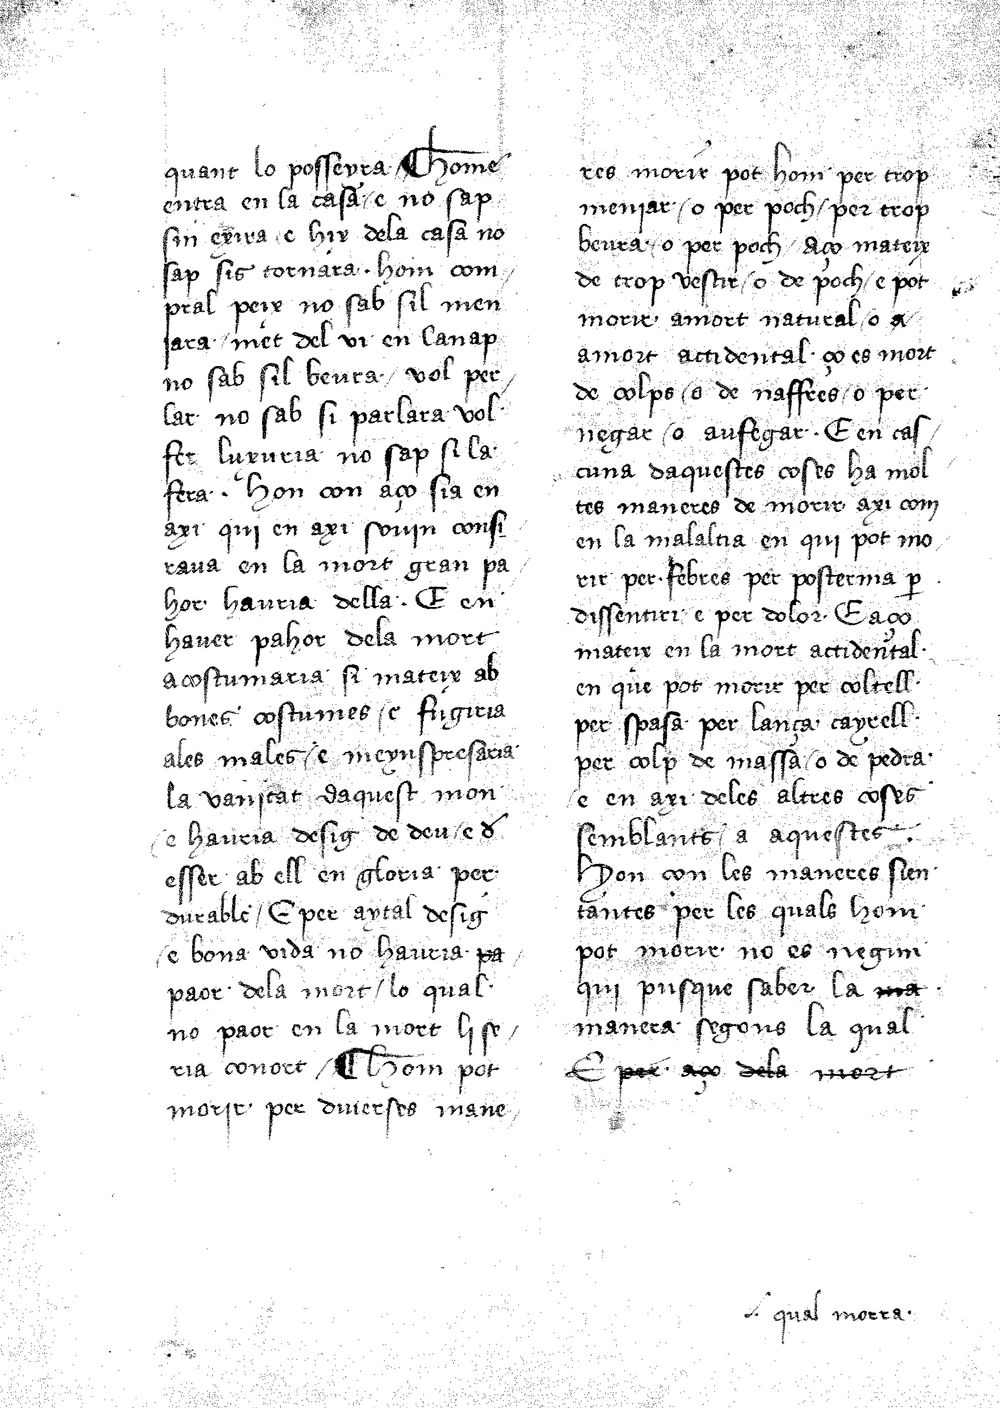 quant lo posseyra / ¶ home
entra en la casa / e no sap
sin exira / e hix dela casa no
sap sis tornara · hom com /
pral peix no sab sil men
jara / met del vi en lanap
no sab sil beura / vol per /
lar no sab si parlara vol
fer luxuria no sap si la
fera · Hon con aço sia en
axi qui en axi sovin consi
rava en la mort gran pa /
hor hauria della · E en
haver pahor dela mort
acostumaria si mateix ab
bones costumes / e fugiria
ales males / e meynspresaria
la vanitat daquest mon
/ e hauria desig de deu / e d
esser ab ell en gloria per
durable / E per aytal desig
/ e bona vida no hauria pa /
paor dela mort / lo qual
no paor en la mort li se /
ria conort / ¶ Hom pot
morir per diverses mane /
res morir pot hom per trop
meniar / o per poch / per trop
beura / o per poch / Aço mateix
de trop vestir / o de poch / e pot
morir amort natural / o a
amort accidental · ço es mort
de colps / o de naffres / o per
negar / o aufegar · E en cas /
cuna daquestes coses ha mol
tes maneres de morir axi com
en la malaltia en qui pot mo /
rir per febres per posterma p
dissentiri e per dolor · E aço
mateix en la mort accidental ·
en que pot morir per coltell ·
per spasa per lança cayrell ·
per colp de massa / o de pedra ·
/ e en axi deles altres coses
semblants / a aquestes · / ·
Hon con les maneres sien
tantes per les quals hom
pot morir no es negun
qui pusque saber la ma
manera segons la qual
E per aço dela mort
/ · qual morra ·